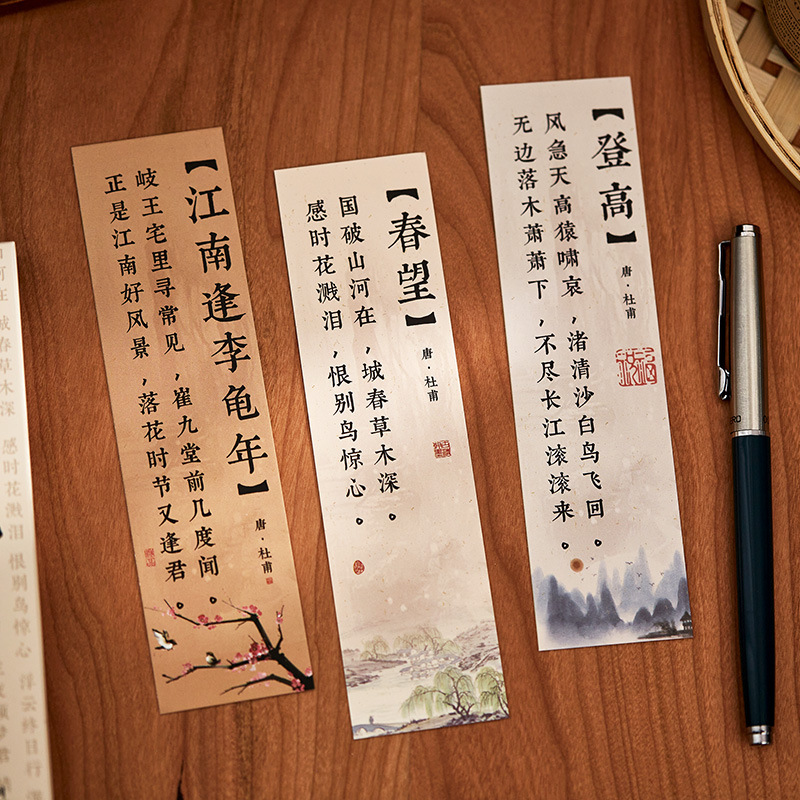 【江南逢李龟年】
唐·杜甫
岐王宅里寻常见,崔九堂前几度闻。
正是江南好风景,落花时节又逢君。
【春望】
唐·杜甫
国破山河在,城春草木深。
感时花溅泪,恨别鸟惊心。
【登高】
唐·杜甫
风急天高猿啸哀,渚清沙白鸟飞回。
无边落木萧萧下,不尽长江滚滚来。
河在 城春草木深 感时花溅泪 恨别鸟惊心 浮云终日行